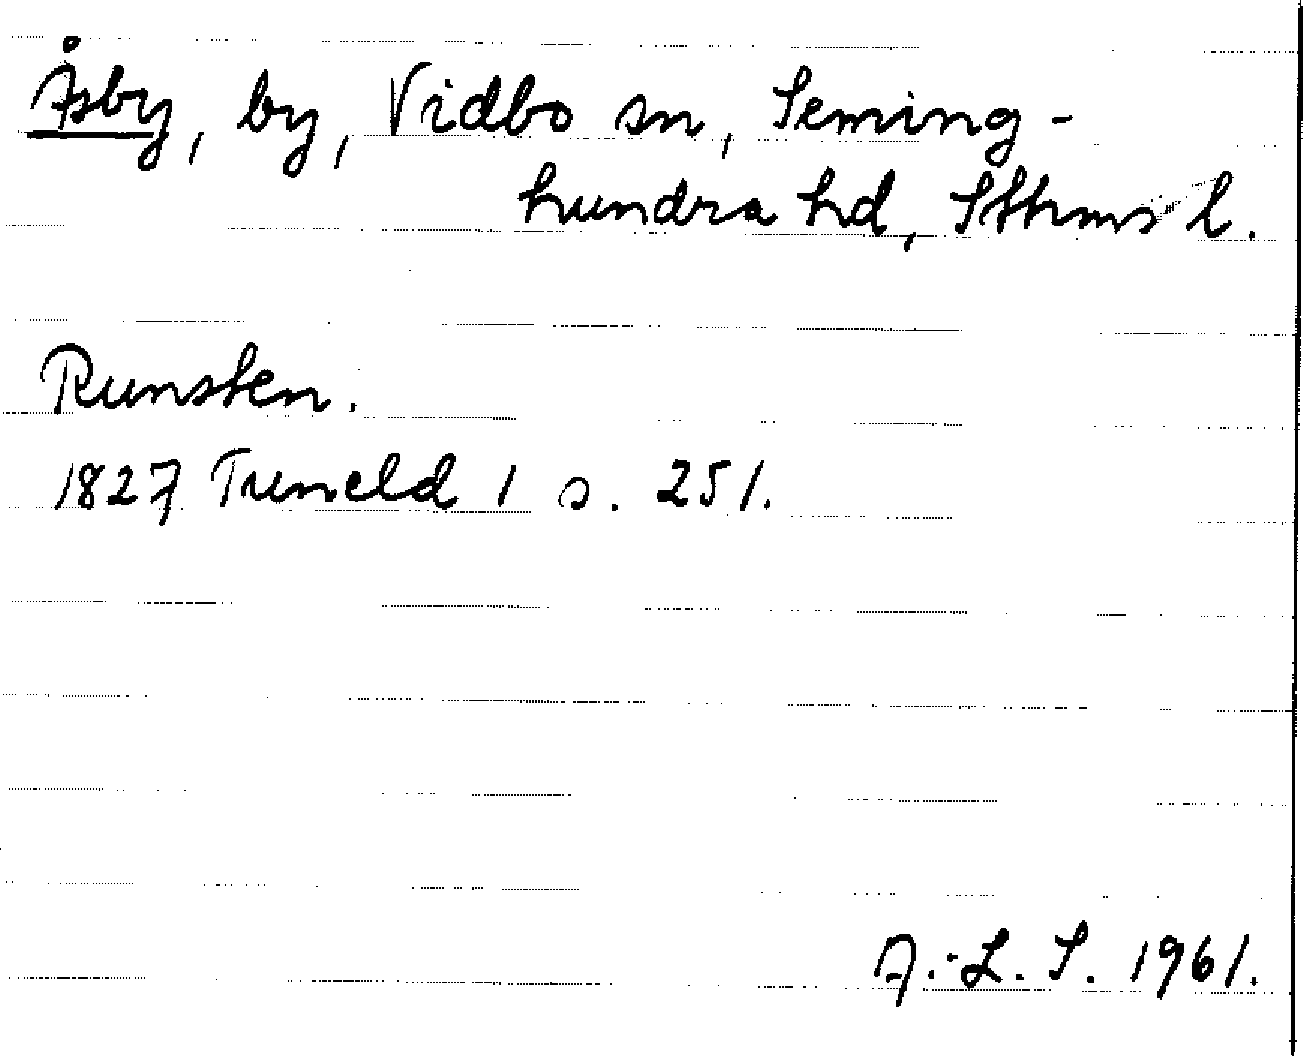 Åsby, by, Vidbo sn, Seming-
hundra hd, Sthms l.
Runsten.
1827 Tuneld 1 s. 251.
A.-L. S. 1961.